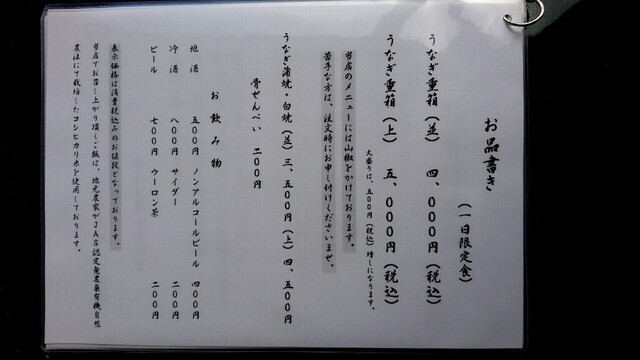 お品書き
(一日限定食)
うなぎ重箱(並) 四、000円(税込)
うなぎ重箱(上) 五、000円(税込)
大盛りは、五00円(税込)増しになります。
当店のメニューには山椒をかけております。
苦手な方は、注文時にお申し付けくださいませ。
うなぎ蒲焼・白焼(並)三、五00円(上)四、五00円
骨せんべい 二00円
お飲み物
地酒 五00円 ノンアルコールビール 四00円
冷酒 八00円 サイダー 二00円
ビール 七00円 ウーロン茶 二00円
表示価格は消費税込みのお値段となっております。
当店でお召し上がり頂くご飯は、地元農家がJAS認定無農薬有機自然
農法にて栽培したコシヒカリ米を使用しております。